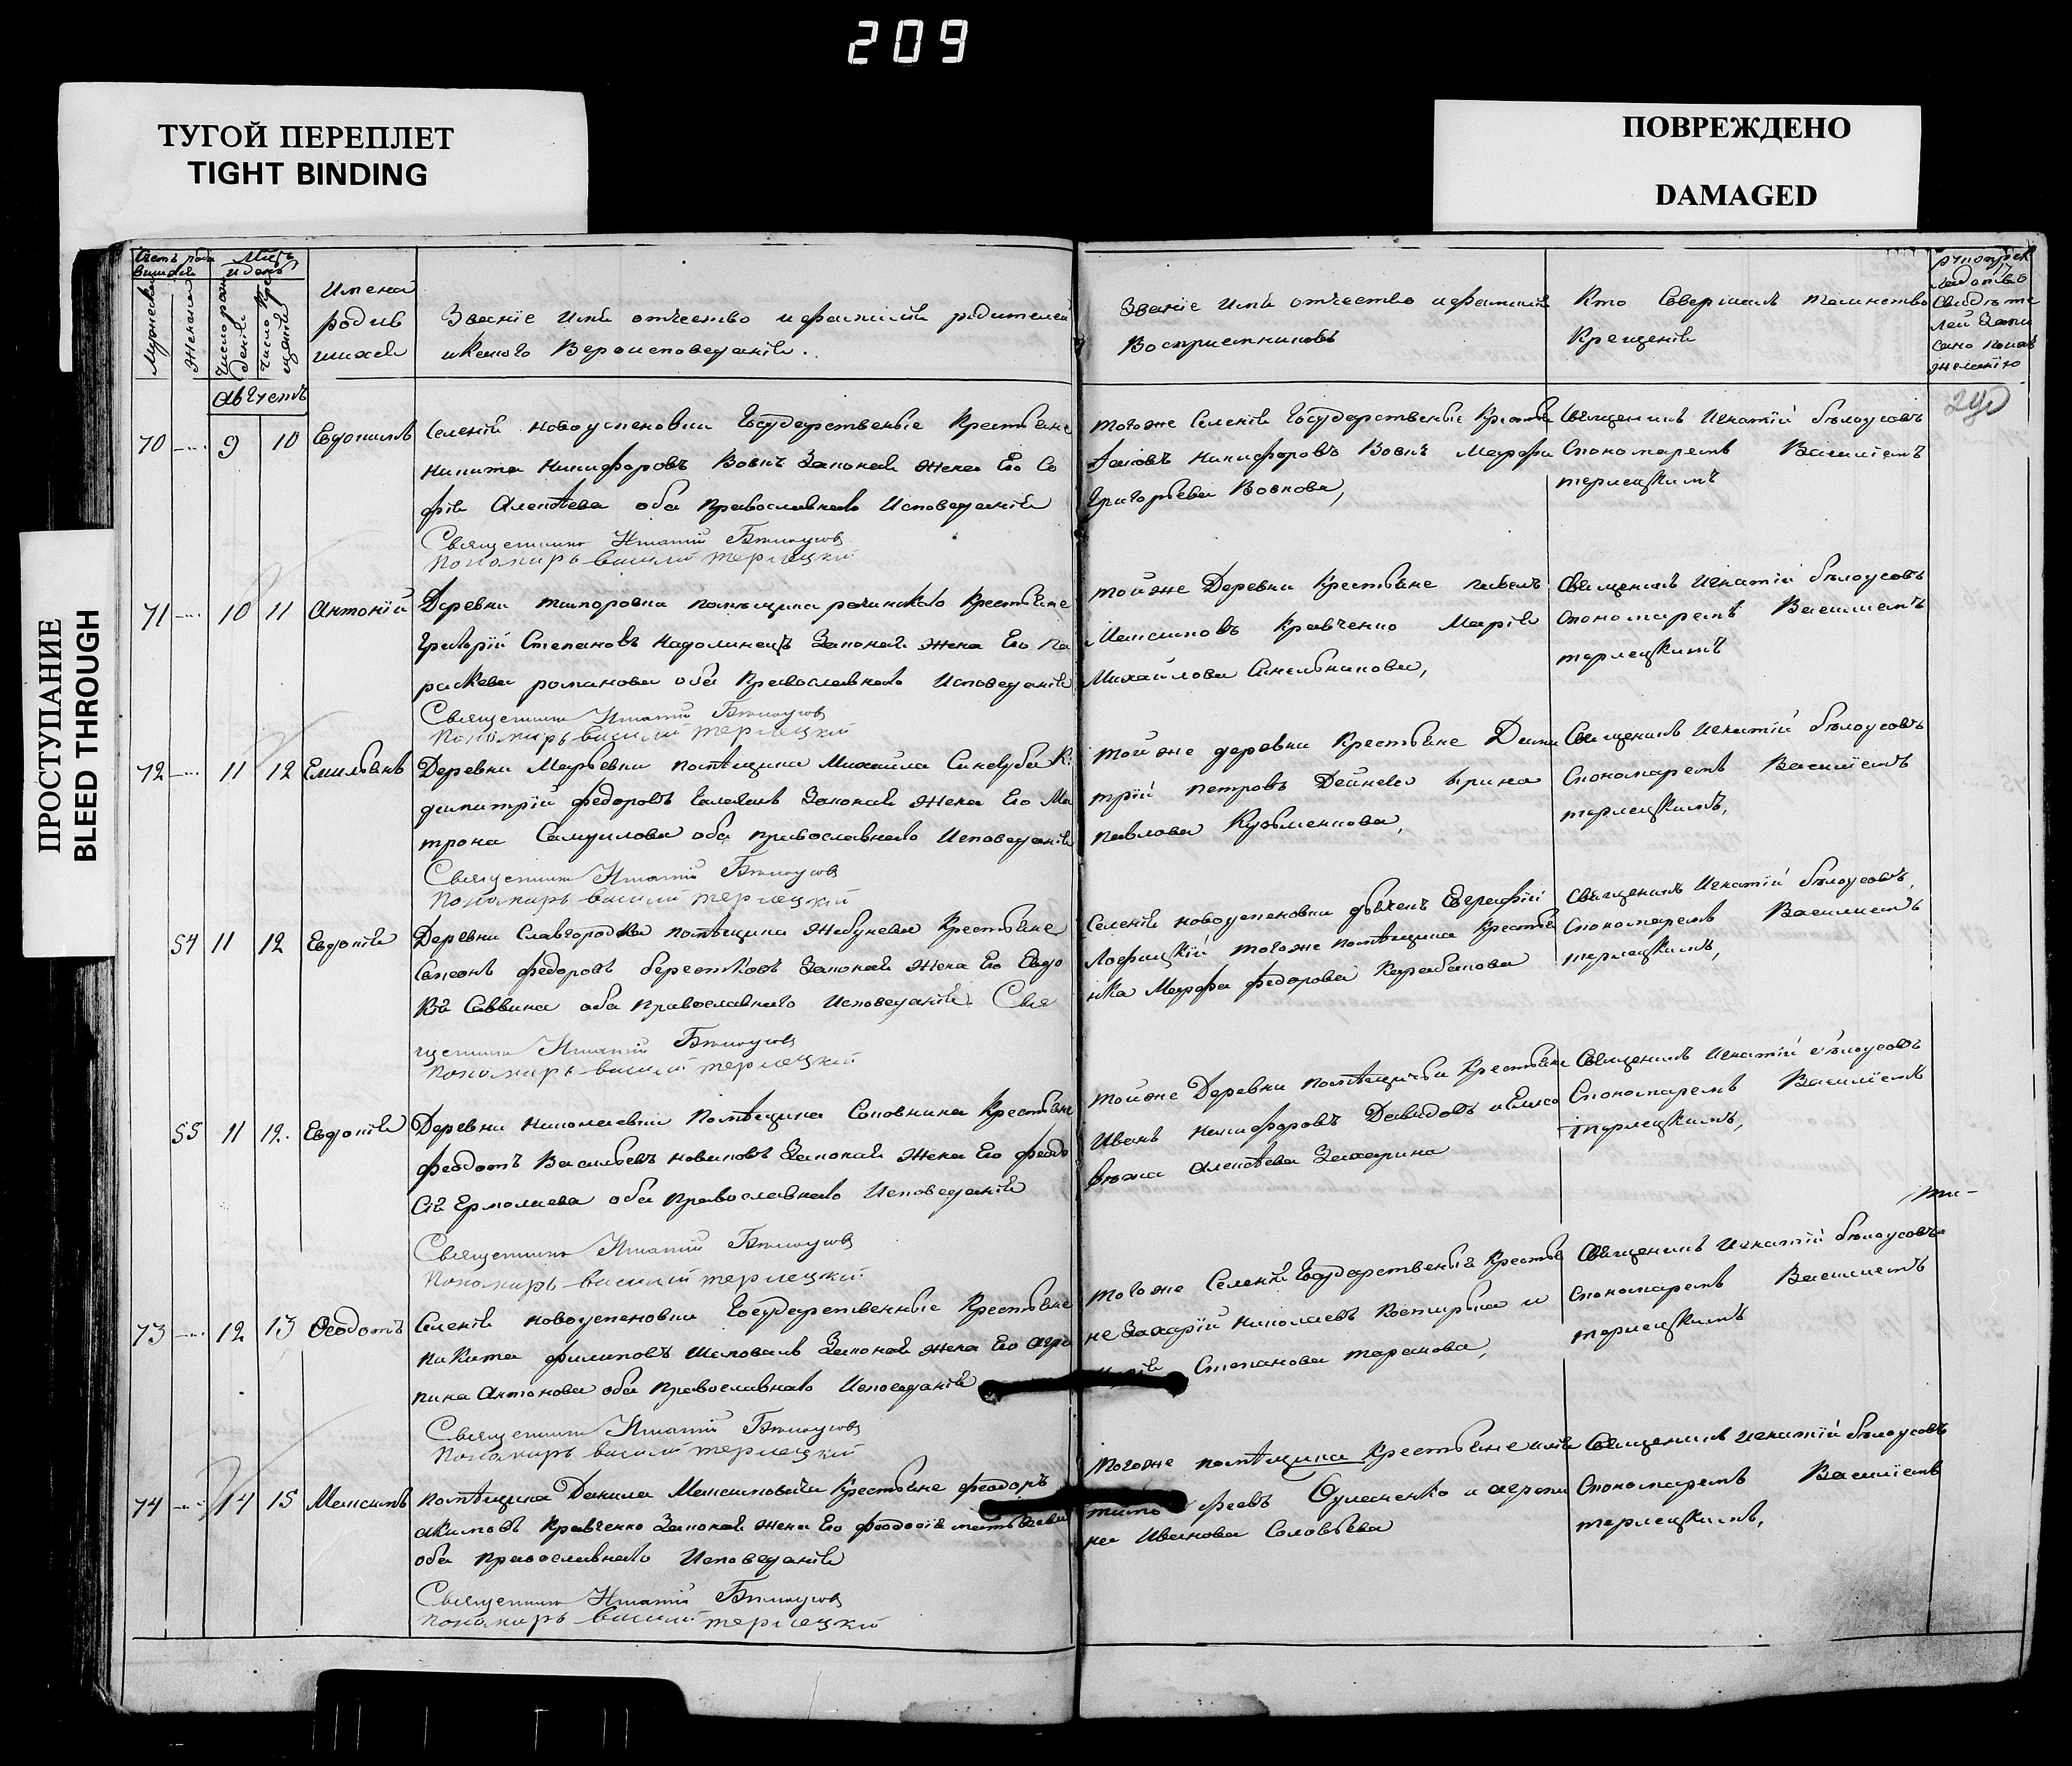 209
ТУГОЙ ПЕРЕПЛЕТ
TIGHT BINDING
ПОВРЕЖДЕНО
DAMAGED
ПРОСТУПАНИЕ
BLEED THROUGH
Мужеска
Женска
Имена
родив
шихся
Званіе Имя отчество и фамилія родителей
и какого Вероисповеданія.
Званіе Имя отчество и фамилія
Восприемниковъ
Кто Совершалъ таинство
Крещенія
Августъ
70 9 10
Селенія Новоуспеновки Государственые Крестьяне
Никита Никифоровъ Вовкъ Законая Жена Его Со
фія Алексѣева оба Православнаго Исповеданія
Священникъ Игнатій Бѣлоусовъ
Пономарь Василий Терлецкий
Тогоже Селенія Государственые Крестья
Никифоровъ Вовкъ Марфа
Григорьева Вовкова,
Священикъ Игнатій бѣлоусовъ
Спономаремъ Василіемъ
терлецкимъ
71 10 11 Антоній
Деревни помѣщика Крестьяне
Григорій Степановъ Надолинецъ Законая Жена Его Па
раскева романова оба Православнаго Исповеданія
Священникъ Игнатій Бѣлоусовъ
Пономарь Василий Терлецкий
тойже Деревни Крестьяне павелъ
Максимовъ Кравченко Марія
Михайлова Синельникова,
Священикъ Игнатій бѣлоусовъ
Спономаремъ Василиемъ
терлецкимъ
72 11 12 Емильянъ
Деревни Марьевки помѣщика Михаила Синегуба К:
димитрій федоровъ Законая Жена Его Ма
трона Самуилова оба православнаго Исповеданія
Священникъ Игнатій Бѣлоусовъ
Пономарь Василий Терлецкий
той же деревни Крестьяне Дими
трій Петровъ Дейнека Ирина
Павлова Кузьменкова,
Священикъ Игнатій бѣлоусовъ
Спономаремъ Василіемъ
терлецкимъ,
54 11 12 Евдокія
Деревни Славгородки помѣщика Жебунева Крестьяне
федоровъ берестковъ Законая Жена Его Евдо
кія Саввина оба православнаго Исповеданія. Свя
щенникъ Игнатій Бѣлоусовъ
Пономарь Василий Терлецкий
Селенія новоуспеновки
Лофицкій тогоже помѣщика Крестья
нка Марфа федорова Карабанова
Священикъ Игнатій бѣлоусовъ,
Спономаремъ Василиемъ
терлецкимъ,
55 11 12. Евдокія
Деревни Николаевки Помѣщика Крестьяне
феодотъ Васильевъ новиковъ Законая Жена Его феодо
сія Ермолаева оба Православнаго Исповеданія
Священникъ Игнатій Бѣлоусовъ
Пономарь Василий Терлецкий
тойже Деревни помѣщичьи Крестьяне
Иванъ Никифоровъ Давидовъ и Елиса
вѣта Алексѣева Захарина
Священикъ Игнатій бѣлоусовъ
Спономаремъ Василіемъ
терлецкимъ,
73 12 13 Феодотъ
Селенія новоуспеновки Государственные Крестьяне
Никита филиповъ Шаповалъ Законая Жена Его Агри
пина Антонова оба Православнаго Исповеданія
Священникъ Игнатій Бѣлоусовъ
Пономарь Василий Терлецкий
тогоже Селенія Государственыя Крестья
не Захарій Николаевъ и
Степанова таранова,
Священикъ Игнатій бѣлоусовъ
Спономаремъ Василиемъ
терлецкимъ
74 14 15 Максимъ
помѣщика Данила Максимовича Крестьяне феодоръ
Акимовъ Кравченко Законая Жена Его феодосія
оба Православнаго Исповеданія
Священникъ Игнатій Бѣлоусовъ
Пономарь Василий Терлецкий
тогоже помѣщика Крестьяне
тимо феевъ и агрипи
на Иванова Соловьева
Священикъ Игнатій бѣлоусовъ
Спономаремъ Василіемъ
терлецкимъ,